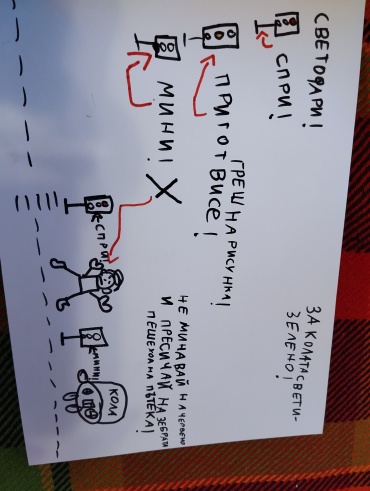 СВЕТОФАРИ!
ЗА КОЛАТА СВЕТИ-
ЗЕЛЕНО!
СПРИ!
ПРИГОТ
ВИСЕ!
ГРЕШНА РИСУНКА!
МИНИ!
НЕ МИНАВАЙ НА ЧЕРВЕНО
И ПРЕСИЧАЙ НА ЗЕБРАТА
ПЕШЕХОДНА ПЪТЕКА!
СПРИ!
МИНИ!
КОЛА